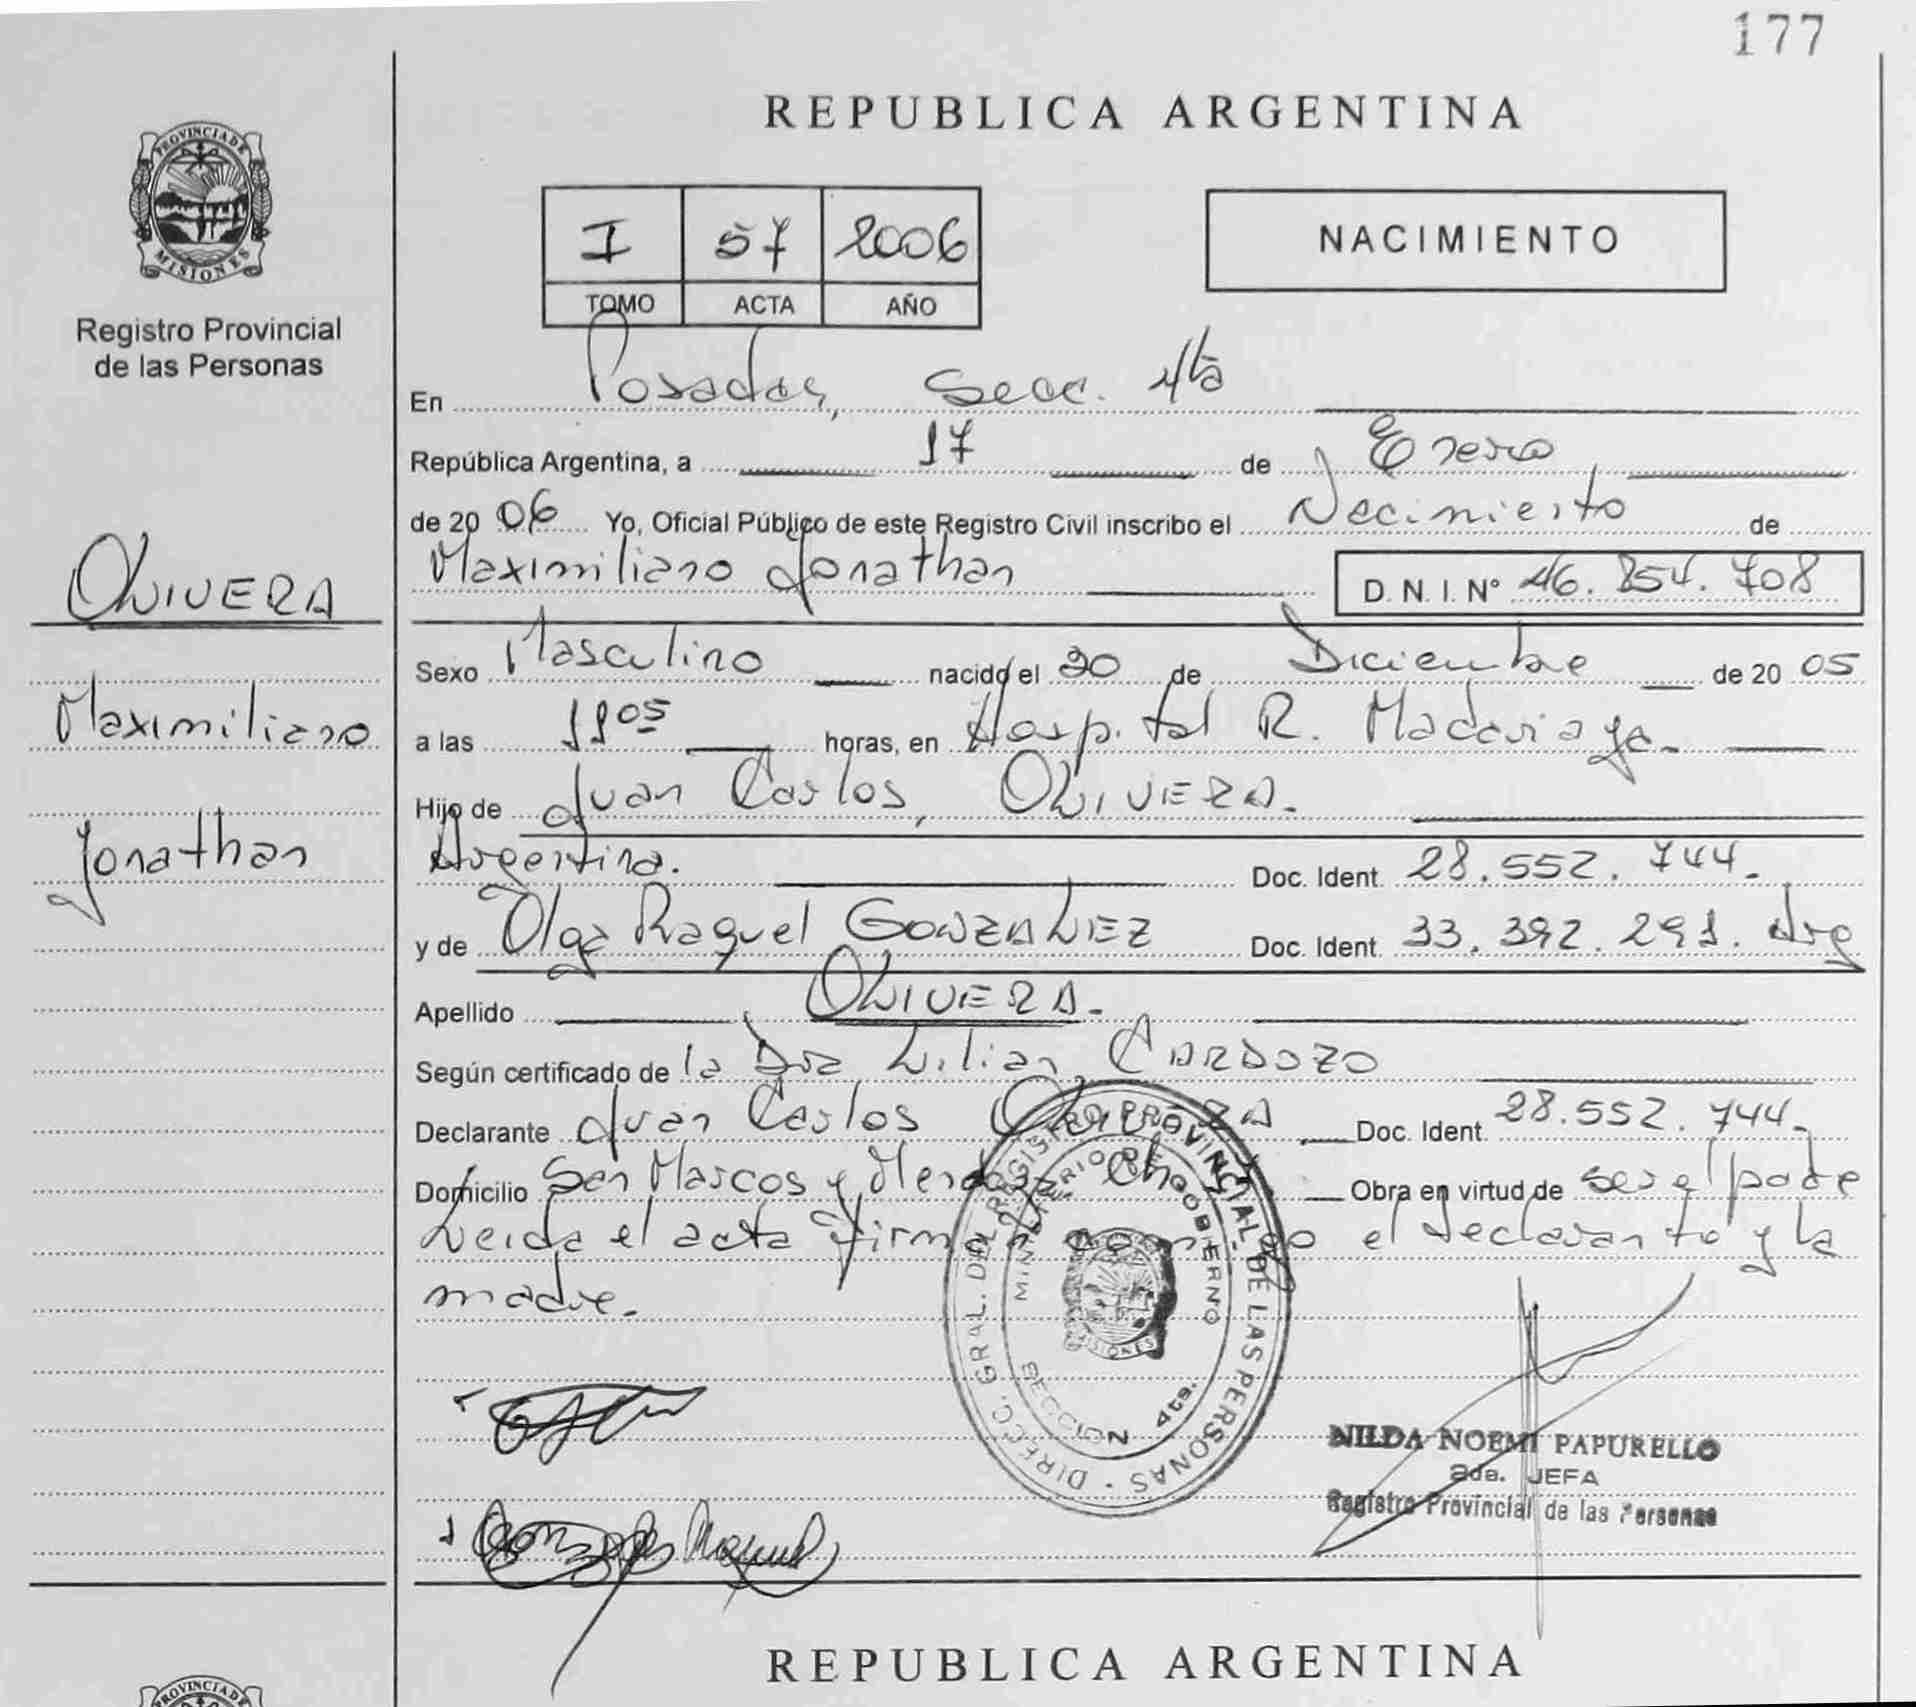 177
REPUBLICA ARGENTINA
PROVINCIA DE MISIONES
Registro Provincial
de las Personas
I 57 2006
TOMO ACTA AÑO
NACIMIENTO
En Posadas, Secc. 4ta
República Argentina, a 17 de Enero
de 2006 Yo, Oficial Público de este Registro Civil inscribo el Nacimiento de
Maximiliano Jonathan D.N.I. Nº 46.854.708
OLIVERA
Maximiliano
Jonathan
Sexo Masculino nacido el 20 de Diciembre de 2005
a las 1105 horas, en Hospital R. Madariaga.
Hijo de Juan Carlos, OLIVERA.
Argentina. Doc. Ident. 28.552.744.
y de Olga Raquel GONZALEZ Doc. Ident. 33.392.291. Arg
Apellido OLIVERA.
Según certificado de la Dra Lilian CARDOZO
Declarante Juan Carlos OLIVERA Doc. Ident. 28.552.744.
Domicilio San Marcos y Mendoza Obra en virtud de ser el padre
Leida el acta firma conmigo el declarante y la
madre.
DIRECC. GRAL. DEL REGISTRO PROVINCIAL DE LAS PERSONAS
MINISTERIO DE GOBIERNO
MISIONES
SECCION 4ta.
NILDA NOEMI PAPURELLO
2da. JEFA
Registro Provincial de las Personas
Gonzalez Raquel
REPUBLICA ARGENTINA
PROVINCIA DE